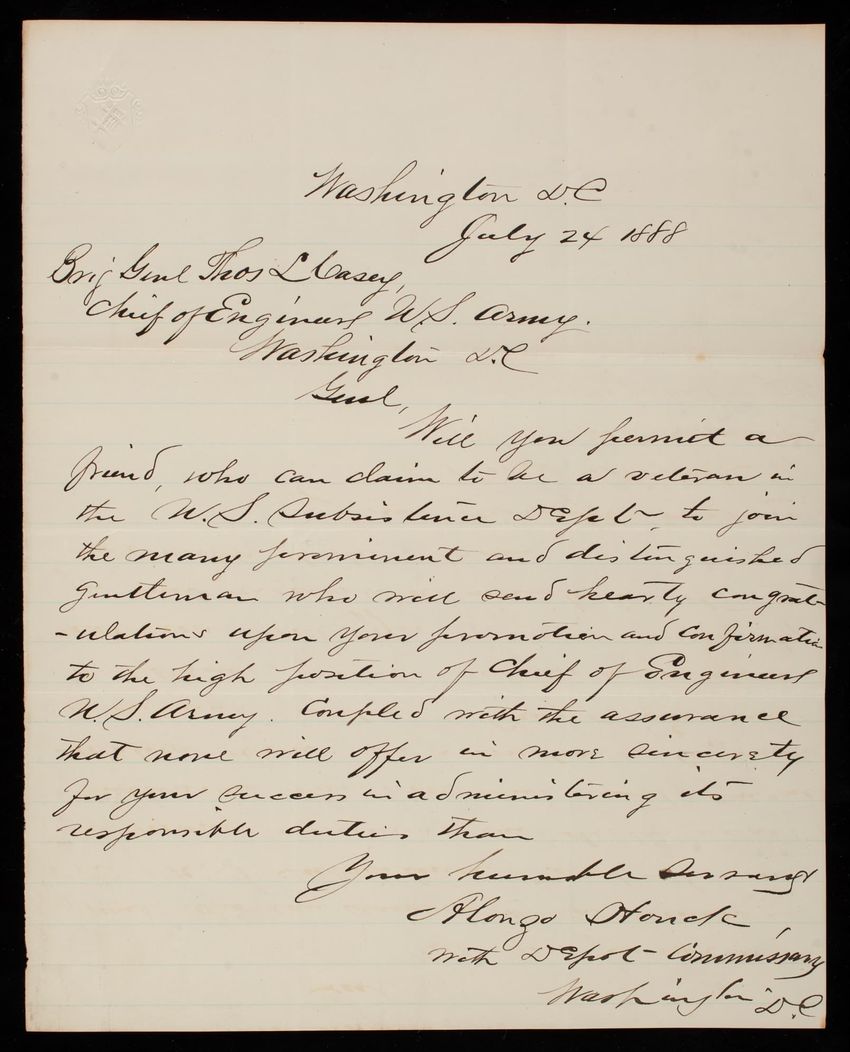 Washington D.C
July 24 1888
Brig Genl Thos L Casey,
Chief of Engineers U.S. Army.
Washington D.C
Genl,
Will you permit a
friend, who can claim to be a veteran in
the U.S. Subsistence Dept, to join
the many prominent and distinguished
gentleman who will send hearty congrat
-ulations upon your promotion and confirmation
to the high position of Chief of Engineers
U.S. Army. Coupled with the assurance
that none will offer in more sincerety
for your success in administering its
responsible duties than
Your humble servant
Alonzo
with Depot Commissary
Washington D.C